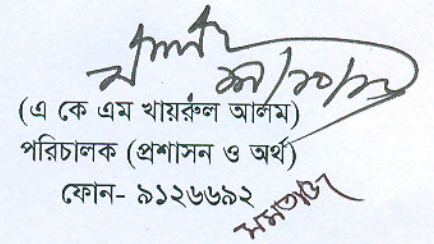 (এ কে এম খায়রুল আলম)
পরিচালক (প্রশাসন ও অর্থ)
ফোন- ৯১২৬৬৯২